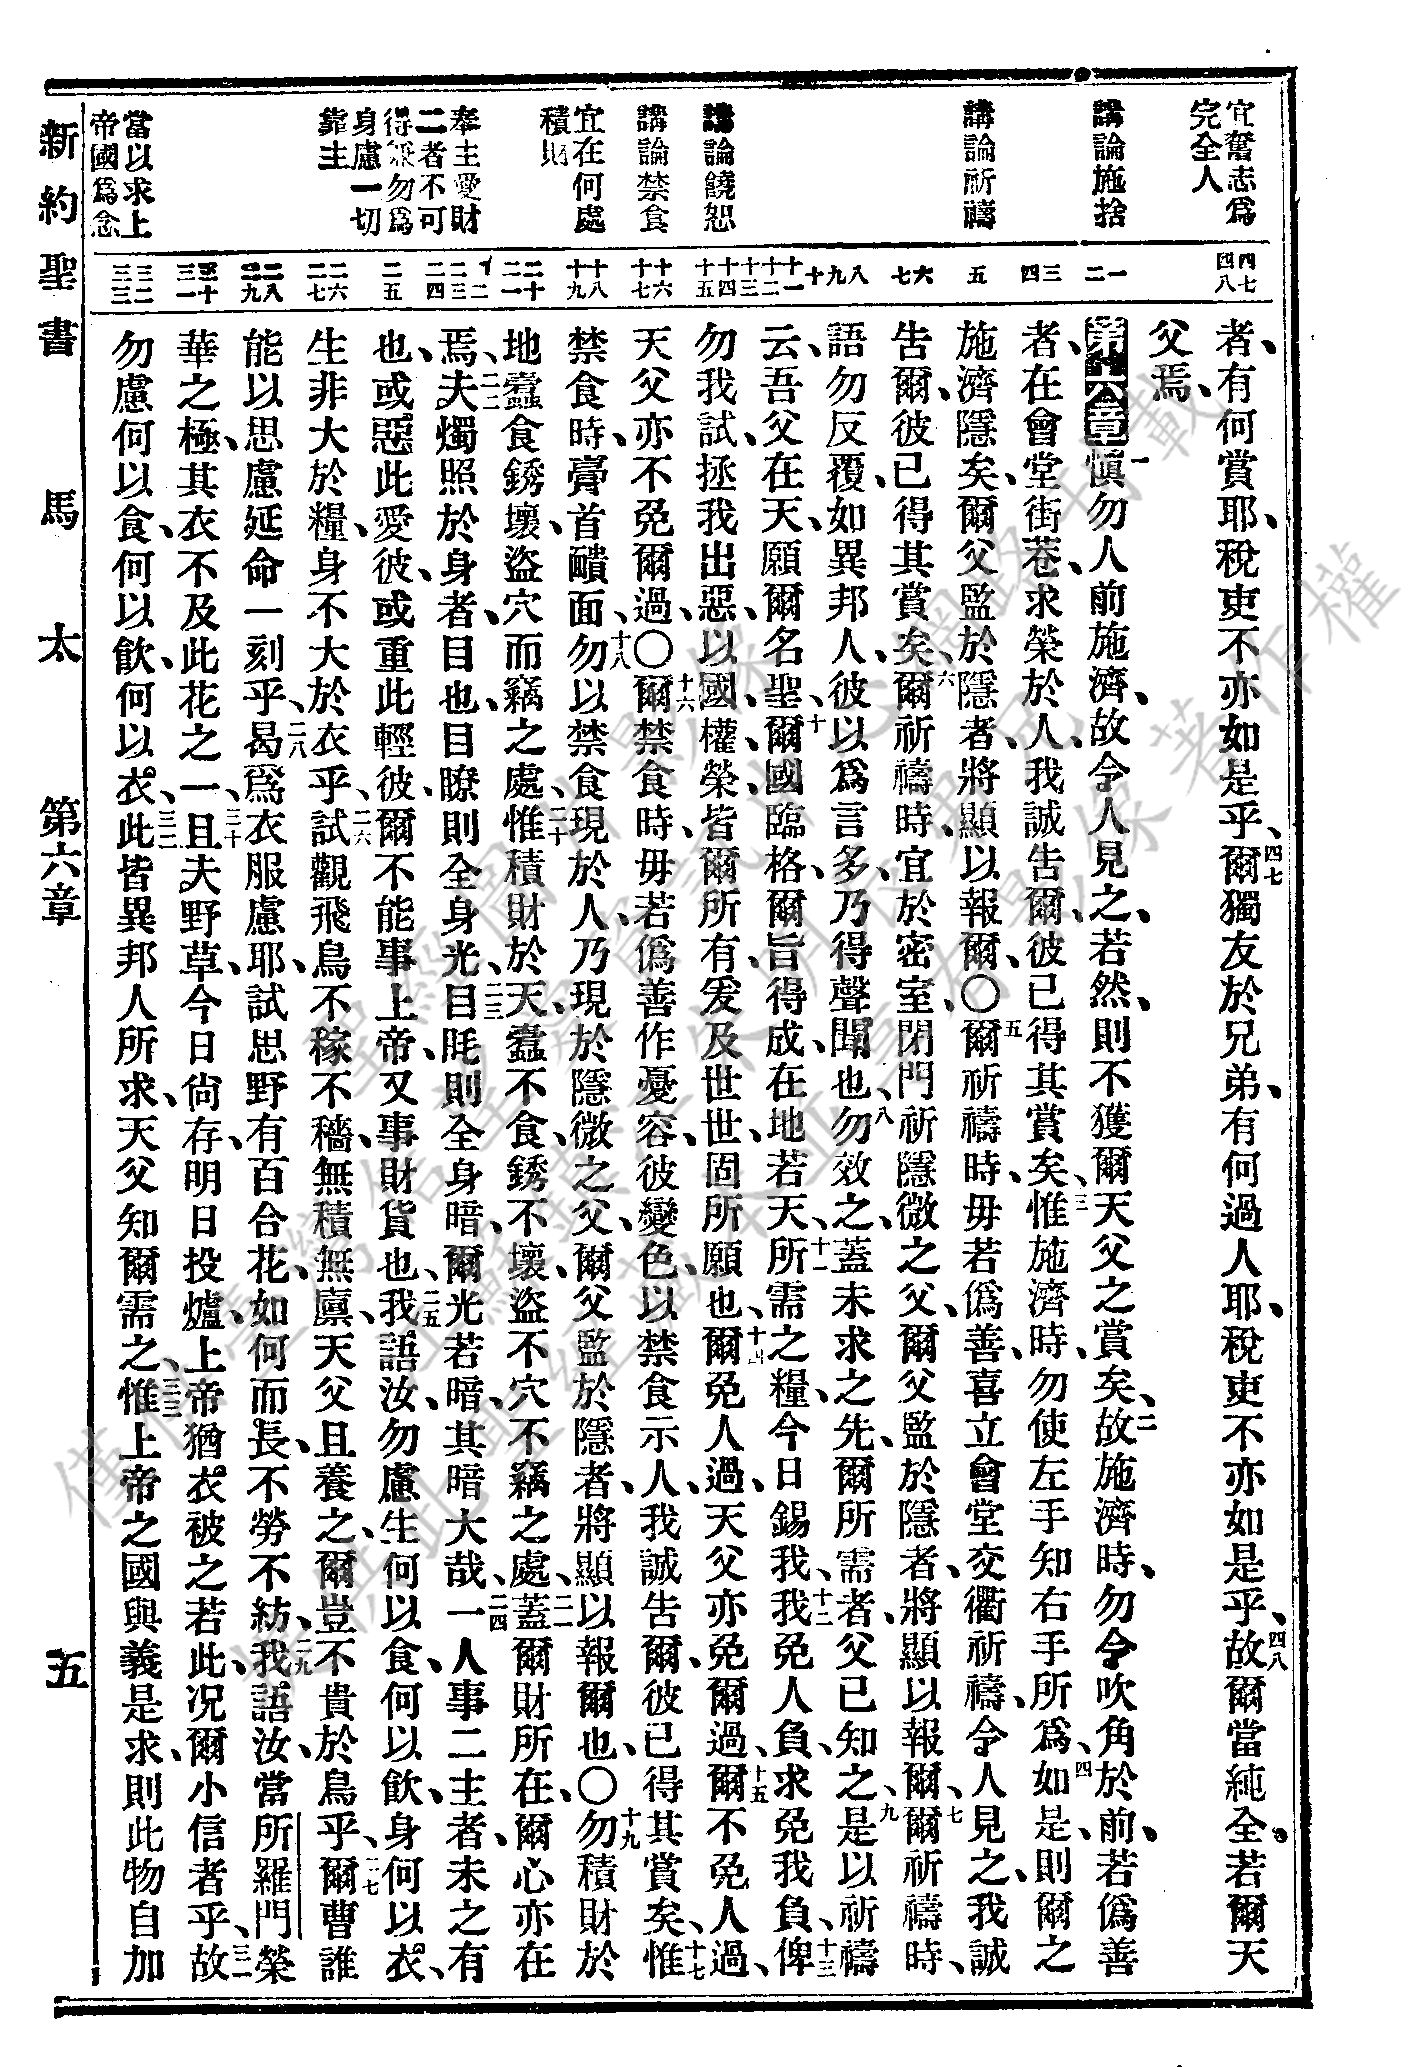 宜奮志爲
完全人
講論施捨
講論祈禱
講論饒恕
講論禁食
宜在何處
積財
奉主愛財
二者不可
得兼勿爲
身慮一切
靠主
當以求上
帝國爲念
四七
四八
一
二
三
四
五
六
七
八
九
十
十一
十二
十三
十四
十五
十六
十七
十八
十九
二十
二一
二二
二三
二四
二五
二六
二七
二八
二九
三十
三一
三二
三三
者、有何賞耶、稅吏不亦如是乎、四七爾獨友於兄弟、有何過人耶、稅吏不亦如是乎、四八故爾當純全、若爾天
父焉、
第六章一愼勿人前施濟、故令人見之、若然、則不獲爾天父之賞矣、二故施濟時、勿令吹角於前、若僞善
者、在會堂街巷、求榮於人、我誠告爾、彼已得其賞矣、三惟施濟時、勿使左手知右手所爲、四如是、則爾之
施濟隱矣、爾父監於隱者、將顯以報爾、〇五爾祈禱時、毋若僞善、喜立會堂交衢祈禱、令人見之、我誠
告爾、彼已得其賞矣、六爾祈禱時、宜於密室、閉門祈隱微之父、爾父監於隱者、將顯以報爾、七爾祈禱時、
語勿反覆、如異邦人、彼以爲言多、乃得聲聞也、八勿效之、蓋未求之先、爾所需者、父已知之、九是以祈禱
云、吾父在天、願爾名聖、十爾國臨格、爾旨得成、在地若天、十一所需之糧、今日錫我、十二我免人負、求免我負、十三俾
勿我試、拯我出惡、以國、權、榮、皆爾所有、爰及世世、固所願也、十四爾免人過、天父亦免爾過、十五爾不免人過、
天父亦不免爾過、〇十六爾禁食時、毋若僞善作憂容、彼變色、以禁食示人、我誠告爾、彼已得其賞矣、十七惟
禁食時、膏首靧面、十八勿以禁食現於人、乃現於隱微之父、爾父監於隱者、將顯以報爾也、〇十九勿積財於
地、蠧食銹壞、盜穴而竊之處、二十惟積財於天、蠧不食、銹不壞、盜不穴不竊之處、二一蓋爾財所在、爾心亦在
焉、二二夫燭照於身者、目也、目瞭則全身光、二三目眊則全身暗、爾光若暗、其暗大哉、二四一人事二主者、未之有
也、或惡此愛彼、或重此輕彼、爾不能事上帝、又事財貨也、二五我語汝、勿慮生何以食、何以飲、身何以衣、
生非大於糧、身不大於衣乎、二六試觀飛鳥、不稼不穡、無積無廩、天父且養之、爾豈不貴於鳥乎、二七爾曹誰
能以思慮延命一刻乎、二八曷爲衣服慮耶、試思野有百合花、如何而長、不勞不紡、二九我語汝、當所羅門榮
華之極、其衣不及此花之一、三十且夫野草、今日尙存、明日投爐、上帝猶衣被之若此、況爾小信者乎、三一故
勿慮何以食、何以飲、何以衣、三二此皆異邦人所求、天父知爾需之、三三惟上帝之國與義是求、則此物自加
新約聖書　馬太　第六章　五